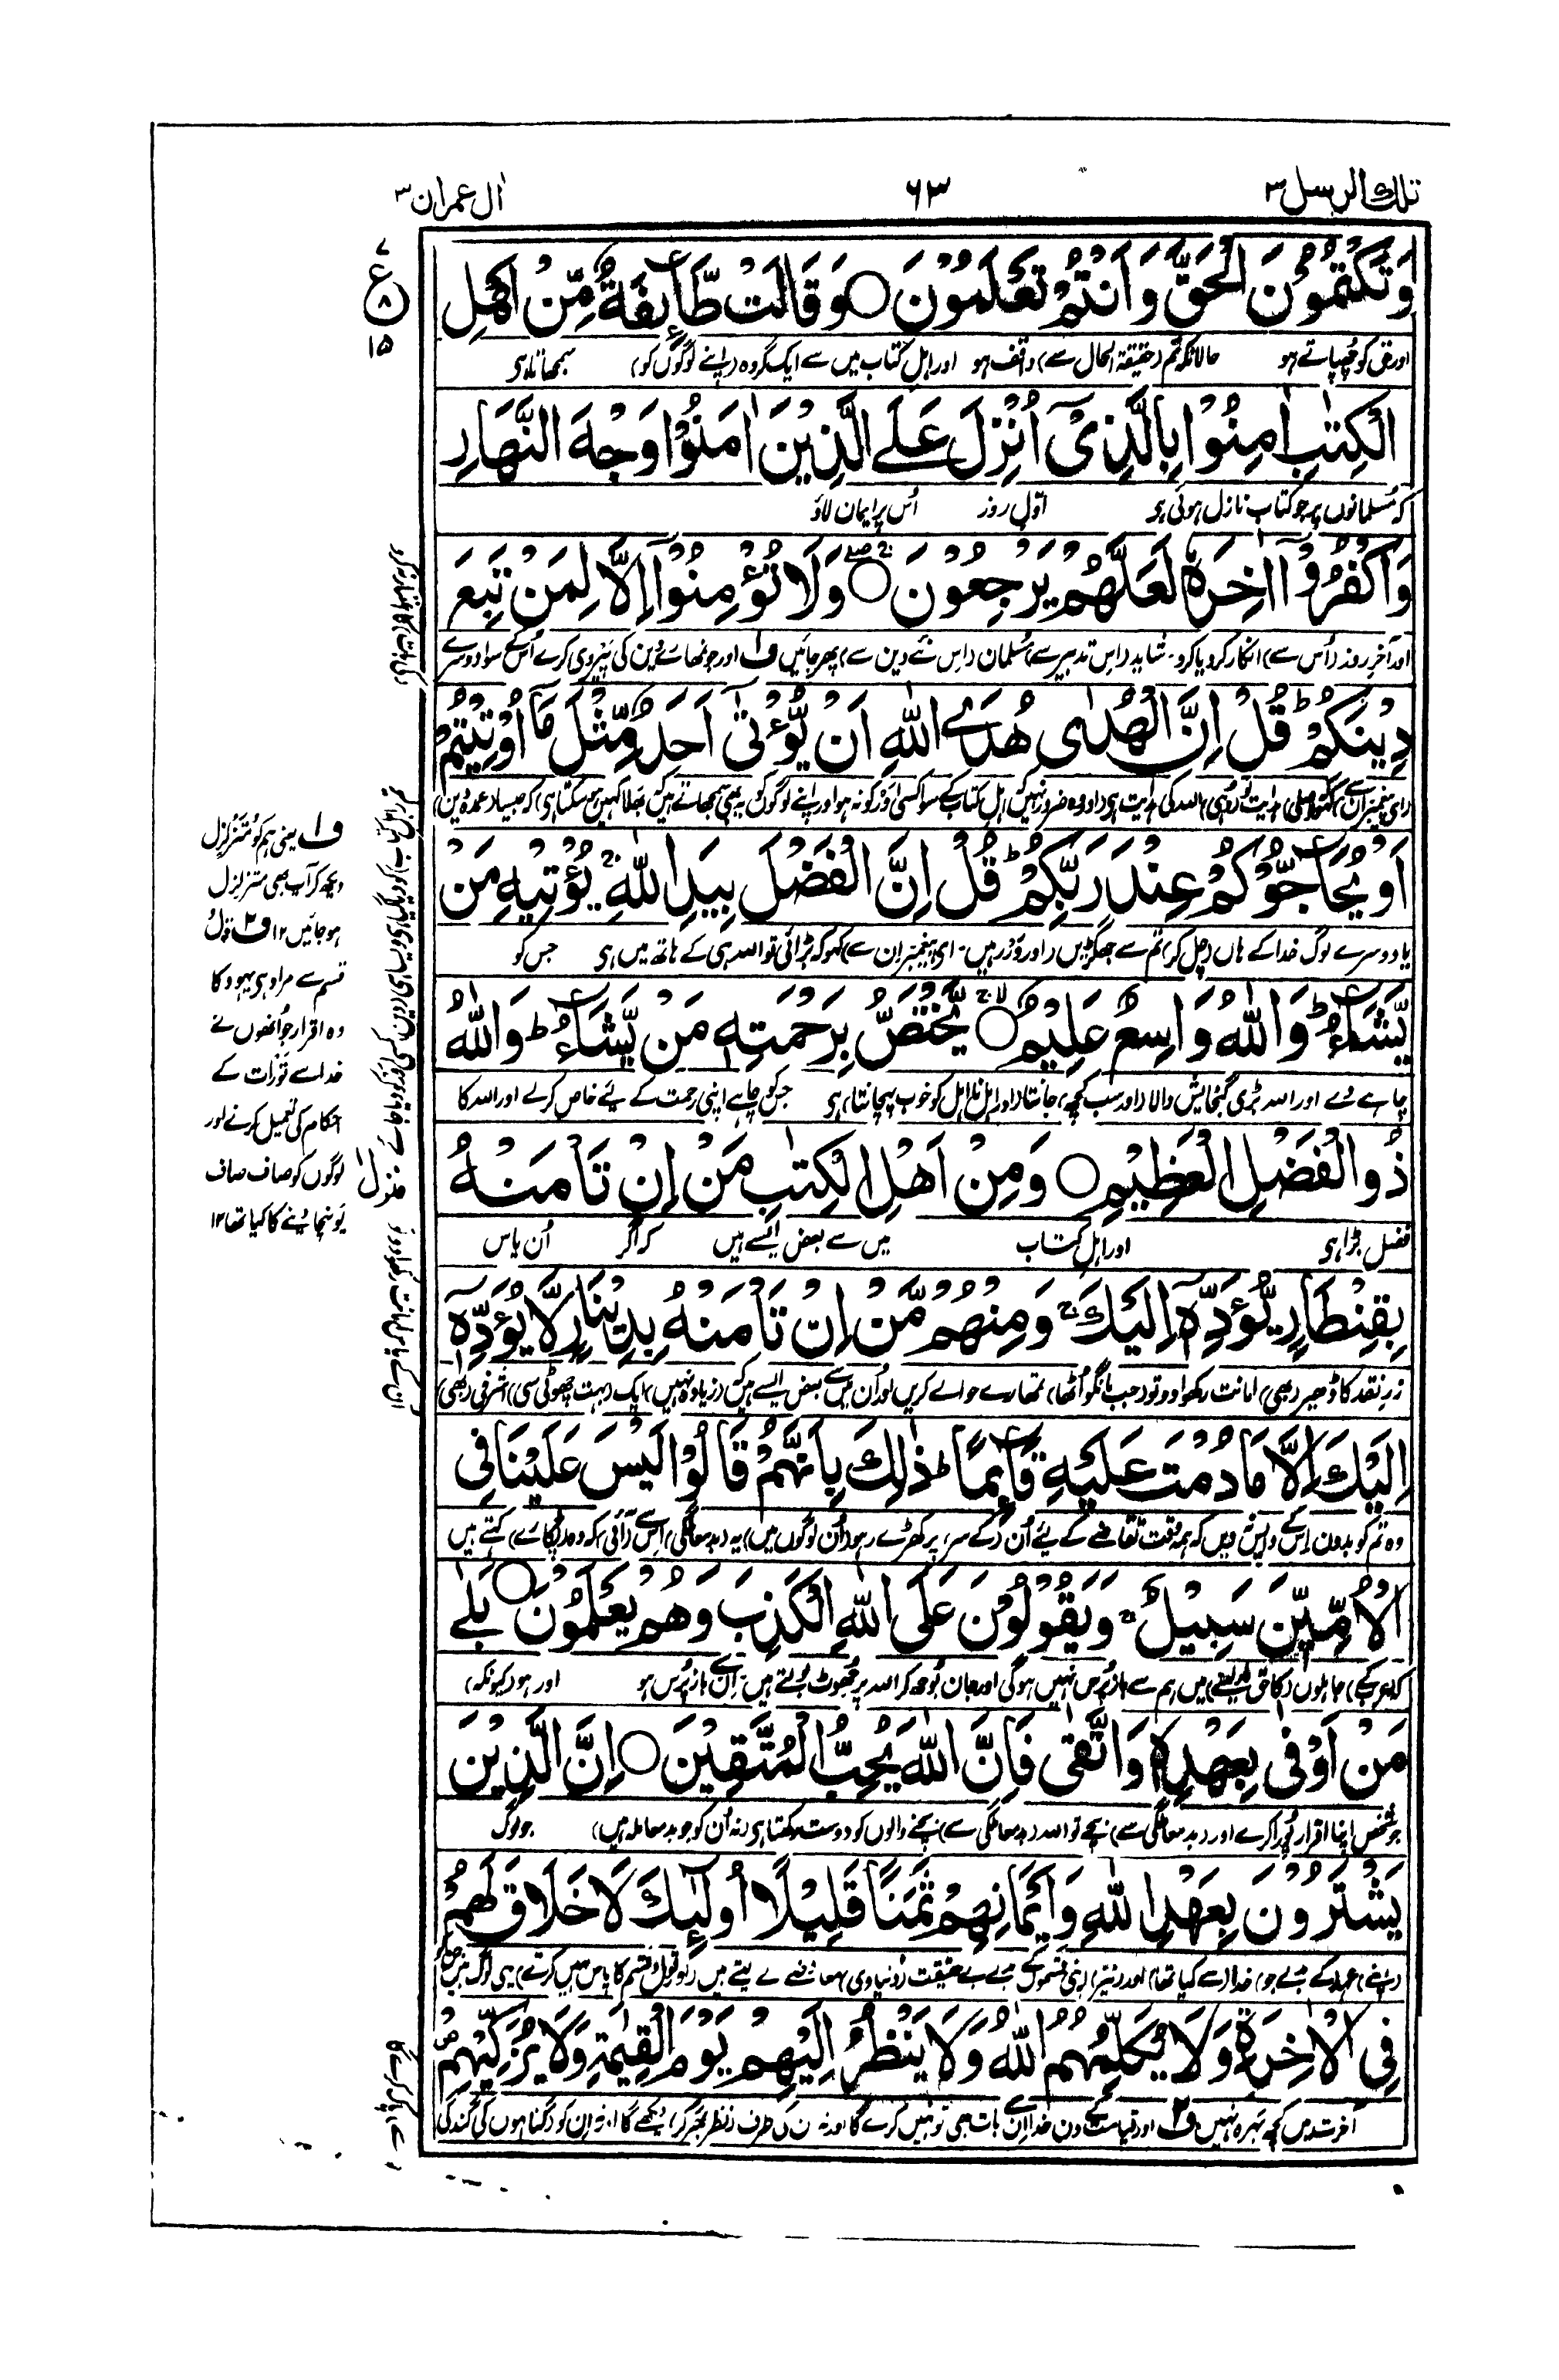 تلك الرسل ۳
۶۳
اٰل عمران ۳
وَتَكْتُمُوْنَ الْحَقَّ وَاَنْتُمْ تَعْلَمُوْنَ ○ وَقَالَتْ طَّآىِٕفَةٌ مِّنْ اَهْلِ
اور حق کو چھپاتے ہو حالانکہ تم (حقیقۃ الحال سے) واقف ہو اور اہل کتاب میں سے ایک گروہ (اپنے لوگوں کو) سمجھاتا ہی
الْكِتٰبِ اٰمِنُوْا بِالَّذِىْٓ اُنْزِلَ عَلَے الَّذِيْنَ اٰمَنُوْا وَجْهَ النَّهَارِ
کہ مسلمانوں پر جو کتاب نازل ہوئی ہی اوّل روز اُس پر ایمان لاؤ
وَاكْفُرُوْٓا اٰخِرَهٗ لَعَلَّهُمْ يَرْجِعُوْنَ ○ وَلَا تُؤْمِنُوْٓا اِلَّا لِمَنْ تَبِعَ
اور آخر روز (اُس سے) انکار کر دیا کرو۔ شاید (اس تدبیر سے) مسلمان (اس نئے دین سے) پھر جائیں ف۱ اور جو تمھارے دین کی پیروی کرے اُس کے سوا دوسرے
دِيْنَكُمْ ؕ قُلْ اِنَّ الْهُدٰى هُدَے اللّٰهِ اَنْ يُّؤْتٰٓى اَحَدٌ مِّثْلَ مَآ اُوْتِيْتُمْ
اَوْ يُحَآجُّوْكُمْ عِنْدَ رَبِّكُمْ ؕ قُلْ اِنَّ الْفَضْلَ بِيَدِ اللّٰهِ ۚ يُؤْتِيْهِ مَنْ
یا دوسرے لوگ خدا کے ہاں (چل کر) تم سے جھگڑیں (اور وَر رہیں)۔ ای پیغمبر ان سے) کہو کہ بڑائی تو اللہ ہی کے ہاتھ میں ہی جس کو
يَّشَآءُ ؕ وَاللّٰهُ وَاسِعٌ عَلِيْمٌ ○ يَّخْتَصُّ بِرَحْمَتِهٖ مَنْ يَّشَآءُ ؕ وَاللّٰهُ
چاہے دے اور اللہ بڑی گنجایش والا (اور سب کچھ) جانتا (اور اہل نا اہل کو خوب پہچانتا) ہی جس کو چاہے اپنی رحمت کے لیے خاص کر لے اور اللہ کا
ذُو الْفَضْلِ الْعَظِيْمِ ○ وَمِنْ اَهْلِ الْكِتٰبِ مَنْ اِنْ تَاْمَنْهُ
فضل بڑا ہی اور اہل کتاب میں سے بعض ایسے ہیں کہ اگر اُن پاس
بِقِنْطَارٍ يُّؤَدِّهٖٓ اِلَيْكَ ۚ وَمِنْهُمْ مَّنْ اِنْ تَاْمَنْهُ بِدِيْنَارٍ لَّا يُؤَدِّهٖٓ
زر نقد کا ڈھیر (بھی) امانت رکھوا دو تو (جب مانگو اُٹھا) تمھارے حوالے کریں اور اُن میں سے بعض ایسے ہیں کہ (زیادہ نہیں) ایک (بہت چھوٹی سی) اشرفی (بھی)
اِلَيْكَ اِلَّا مَا دُمْتَ عَلَيْهِ قَآىِٕمًا ؕ ذٰلِكَ بِاَنَّهُمْ قَالُوْا لَيْسَ عَلَيْنَا فِى
وہ تم کو بدون اس کے واپس نہ دیں کہ ہمہ وقت تقاضے کے لیے اُن (کے سر) پر کھڑے رہو (اُن لوگوں میں) یہ (بد معاملگی) اس سے (آئی) کہ وہ (پکارے) کہتے ہیں
الْاُمِّيّٖنَ سَبِيْلٌ ۚ وَيَقُوْلُوْنَ عَلَى اللّٰهِ الْكَذِبَ وَهُمْ يَعْلَمُوْنَ ○ بَلٰے
کہ (عرب کے) جاہلوں (کا حق) میں ہم سے باز پُرس نہیں ہو گی اور جان بوجھ کر اللہ پر جھوٹ بولتے ہیں۔ ان سے باز پُرس ہو اور ہو (کیونکہ)
مَنْ اَوْفٰى بِعَهْدِهٖ وَاتَّقٰى فَاِنَّ اللّٰهَ يُحِبُّ الْمُتَّقِيْنَ ○ اِنَّ الَّذِيْنَ
جو شخص اپنا اقرار پورا کرے اور (بد معاملگی سے) بچے تو اللہ (بد معاملگی سے) بچنے والوں کو دوست رکھتا ہی (نہ اُن کو جو بد معاملہ ہیں) جو لوگ
يَشْتَرُوْنَ بِعَهْدِ اللّٰهِ وَاَيْمَانِهِمْ ثَمَنًا قَلِيْلًا اُولٰٓىِٕكَ لَا خَلَاقَ لَهُمْ
فِى الْاٰخِرَةِ وَلَا يُكَلِّمُهُمُ اللّٰهُ وَلَا يَنْظُرُ اِلَيْهِمْ يَوْمَ الْقِيٰمَةِ وَلَا يُزَكِّيْهِمْ
آخرت میں کچھ بہرہ نہیں ف۲ اور قیامت کے دن خدا ان سے بات بھی تو نہیں کرے گا اور نہ ان کی طرف (نظر بھر کر) دیکھے گا اور نہ ان کو (گناہوں کی گندگی
ع ۸ ۱۵
ف۱ یعنی ہم کو متزلزل
دیکھ کر آپ بھی متزلزل
ہو جائیں ۱۲ ف۲ قول
قسم سے مراد ہی یہود کا
وہ اقرار جو اُنھوں نے
خدا سے تورات کے
احکام کی تعمیل کرنے اور
لوگوں کو صاف صاف
پونہچا دینے کا کیا تھا ۱۲
منزل ۱